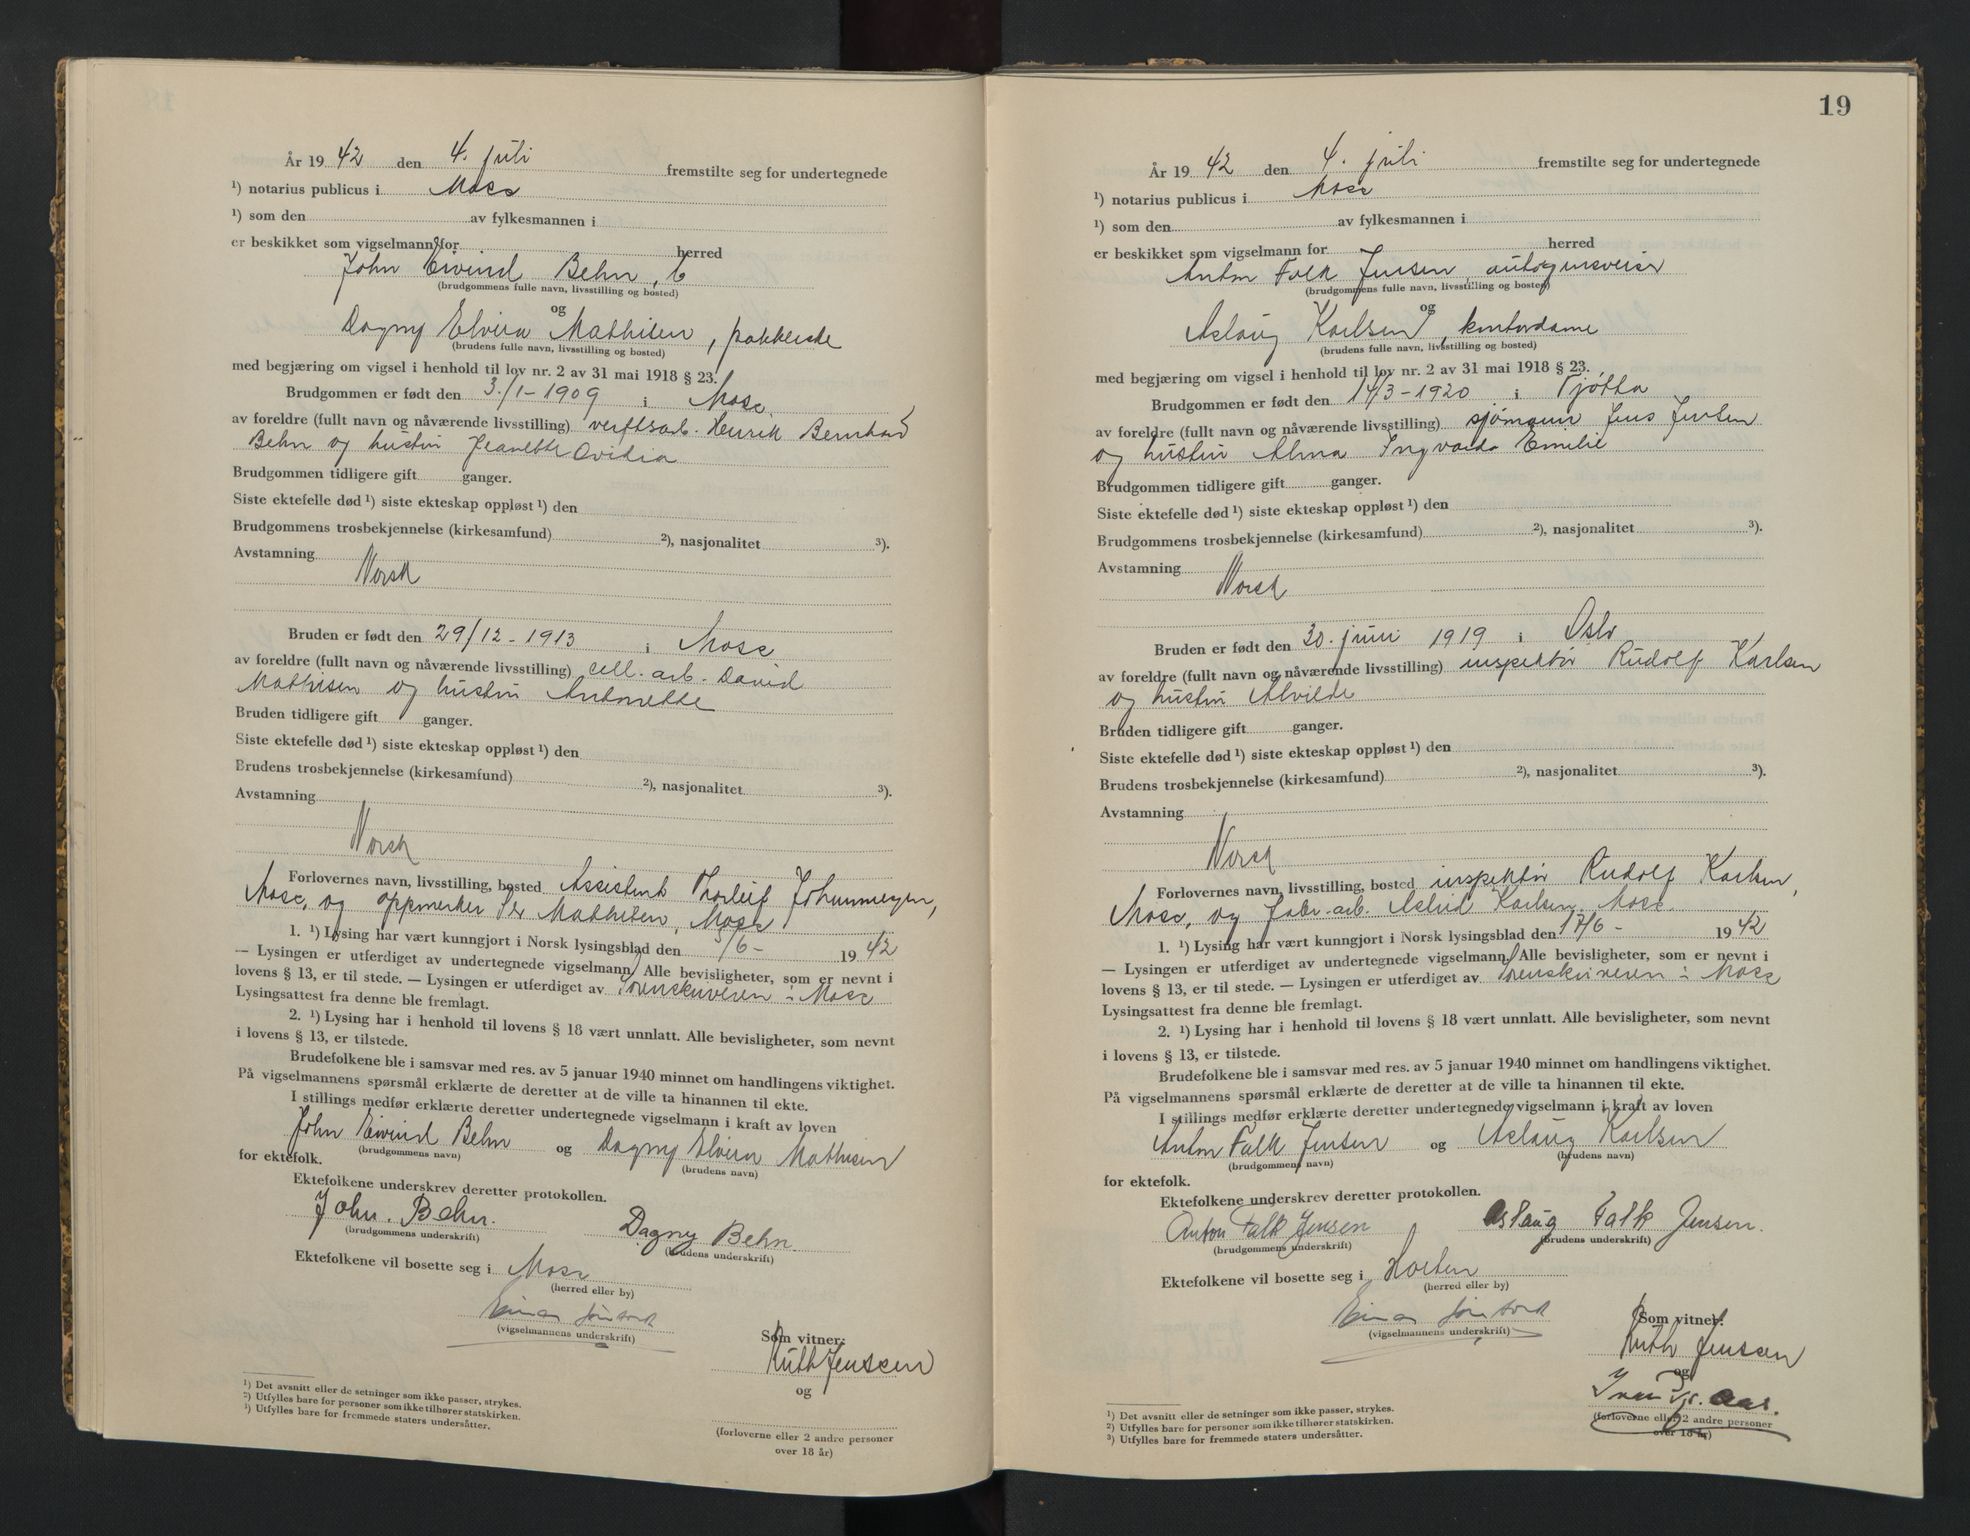 År 19 42 den 4. juli fremstilte seg for undertegnede
¹) notarius publicus i Moss
¹) som den av fylkesmannen i
er beskikket som vigselmann for herred
John Eivind Behn,
(brudgommens fulle navn, livsstilling og bosted)
og
Dagny Elvira Mathisen, pakkerske
(brudens fulle navn, livsstilling og bosted)
med begjæring om vigsel i henhold til lov nr. 2 av 31 mai 1918 § 23.
Brudgommen er født den 3./1-1909 i Moss.
av foreldre (fullt navn og nåværende livsstilling) verftsarb. Henrik Bernhard
Behn og hustru Jeanette Ovidia
Brudgommen tidligere gift ganger.
Siste ektefelle død ¹) siste ekteskap oppløst ¹) den
Brudgommens trosbekjennelse (kirkesamfund) ²), nasjonalitet ³).
Avstamning
Norsk
Bruden er født den 29/12-1913 i Moss
av foreldre (fullt navn og nåværende livsstilling) cell. arb. David
Mathisen og hustru Antonette
Bruden tidligere gift ganger.
Siste ektefelle død ¹) siste ekteskap oppløst ¹) den
Brudens trosbekjennelse (kirkesamfund) ²), nasjonalitet ³).
Avstamning
Norsk
Forlovernes navn, livsstilling, bosted Assistent Thorleif
Moss, og oppmerker Mathisen, Moss
1. ¹) Lysing har vært kunngjort i Norsk lysingsblad den 5/6- 19 42
— Lysingen er utferdiget av undertegnede vigselmann. Alle bevisligheter, som er nevnt i
lovens § 13, er til stede. — Lysingen er utferdiget av Sorenskriveren i Moss
Lysingsattest fra denne ble fremlagt.
2. ¹) Lysing har i henhold til lovens § 18 vært unnlatt. Alle bevisligheter, som nevnt
i lovens § 13, er tilstede.
Brudefolkene ble i samsvar med res. av 5 januar 1940 minnet om handlingens viktighet.
På vigselmannens spørsmål erklærte de deretter at de ville ta hinannen til ekte.
I stillings medfør erklærte deretter undertegnede vigselmann i kraft av loven
John Eivind Behn og Dagny Elvira Mathisen
(brudgommens navn) (brudens navn)
for ektefolk.
Ektefolkene underskrev deretter protokollen.
John. Behn. Dagny Behn.
(brudgommens underskrift) (brudens underskrift)
Ektefolkene vil bosette seg i Moss
(herred eller by)
Einar
(vigselmannens underskrift)
Som vitner:
Ruth Jenssen
og
(forloverne eller 2 andre personer
over 18 år)
¹) Det avsnitt eller de setninger som ikke passer, strykes.
²) Utfylles bare for personer som ikke tilhører statskirken.
³) Utfylles bare for fremmede staters undersåtter.
19
År 19 42 den 4. juli fremstilte seg for undertegnede
¹) notarius publicus i Moss
¹) som den av fylkesmannen i
er beskikket som vigselmann for herred
Anton Falk Jensen, autogensveiser
(brudgommens fulle navn, livsstilling og bosted)
og
Aslaug Karlsen, kontordame
(brudens fulle navn, livsstilling og bosted)
med begjæring om vigsel i henhold til lov nr. 2 av 31 mai 1918 § 23.
Brudgommen er født den 14/3-1920 i Tjøtta
av foreldre (fullt navn og nåværende livsstilling) sjømann Jens Jensen
og hustru Alma Ingvarda Emelie
Brudgommen tidligere gift ganger.
Siste ektefelle død ¹) siste ekteskap oppløst ¹) den
Brudgommens trosbekjennelse (kirkesamfund) ²), nasjonalitet ³).
Avstamning
Norsk
Bruden er født den 30. juni 1919 i Oslo
av foreldre (fullt navn og nåværende livsstilling) inspektør Rudolf Karlsen
og hustru Alvilde
Bruden tidligere gift ganger.
Siste ektefelle død ¹) siste ekteskap oppløst ¹) den
Brudens trosbekjennelse (kirkesamfund) ²), nasjonalitet ³).
Avstamning
Norsk
Forlovernes navn, livsstilling, bosted inspektør Rudolf Karlsen,
Moss, og fabr.-arb. Astrid Karlsen, Moss.
1. ¹) Lysing har vært kunngjort i Norsk lysingsblad den 17/6- 19 42
— Lysingen er utferdiget av undertegnede vigselmann. Alle bevisligheter, som er nevnt i
lovens § 13, er til stede. — Lysingen er utferdiget av Sorenskriveren i Moss
Lysingsattest fra denne ble fremlagt.
2. ¹) Lysing har i henhold til lovens § 18 vært unnlatt. Alle bevisligheter, som nevnt
i lovens § 13, er tilstede.
Brudefolkene ble i samsvar med res. av 5 januar 1940 minnet om handlingens viktighet.
På vigselmannens spørsmål erklærte de deretter at de ville ta hinannen til ekte.
I stillings medfør erklærte deretter undertegnede vigselmann i kraft av loven
Anton Falk Jensen og Aslaug Karlsen
(brudgommens navn) (brudens navn)
for ektefolk.
Ektefolkene underskrev deretter protokollen.
Anton Falk Jensen Aslaug Falk Jensen.
(brudgommens underskrift) (brudens underskrift)
Ektefolkene vil bosette seg i Horten
(herred eller by)
Einar
(vigselmannens underskrift)
Som vitner:
Ruth Jenssen
og
Aas.
(forloverne eller 2 andre personer
over 18 år)
¹) Det avsnitt eller de setninger som ikke passer, strykes.
²) Utfylles bare for personer som ikke tilhører statskirken.
³) Utfylles bare for fremmede staters undersåtter.